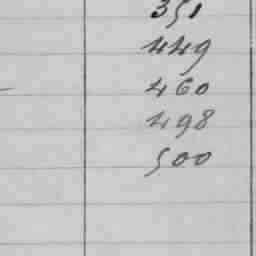 351
449
460
498
500